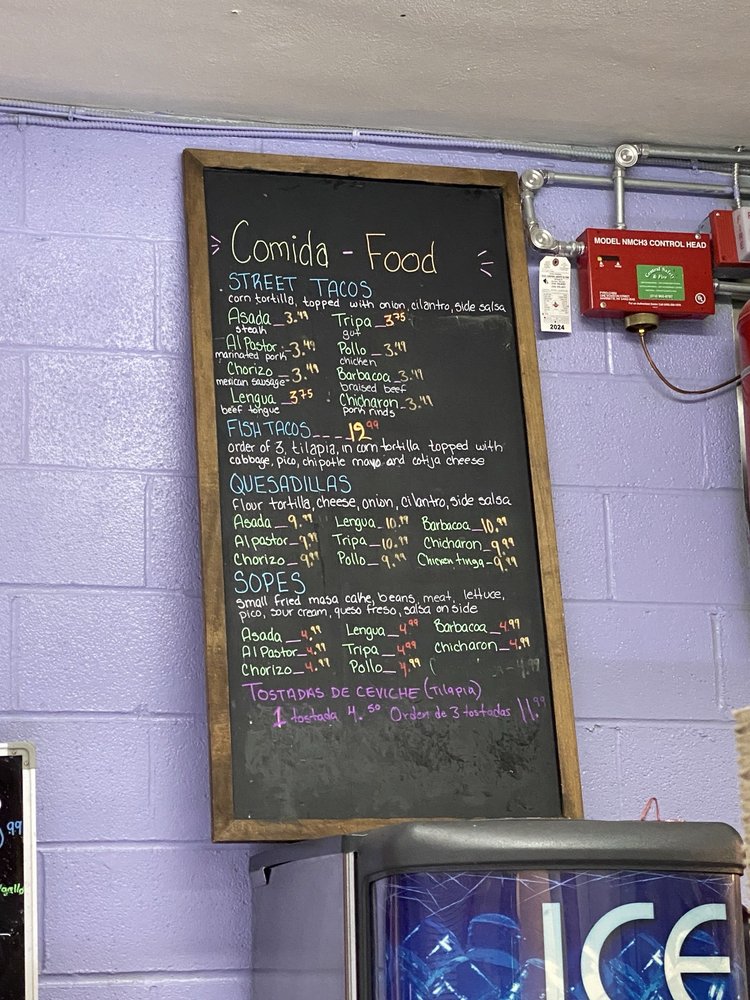 Comida - Food
STREET TACOS
corn tortilla, topped with onion, cilantro, side salsa
Asada 3.49 Tripa 3.75
steak gut
Al Pastor 3.49 Pollo 3.49
marinated pork chicken
Chorizo 3.49 Barbacoa 3.49
mexican sausage braised beef
Lengua 3.75 Chicharon 3.49
beef tongue pork rinds
FISH TACOS 12.99
order of 3, tilapia, in corn tortilla topped with
cabbage, pico, chipotle mayo and cotija cheese
QUESADILLAS
flour tortilla, cheese, onion, cilantro, side salsa
Asada 9.99 Lengua 10.99 Barbacoa 10.99
Al pastor 9.99 Tripa 10.99 Chicharon 9.99
Chorizo 9.99 Pollo 9.99 Chicken tinga 9.99
SOPES
small fried masa cake, beans, meat, lettuce,
pico, sour cream, queso freso, salsa on side
Asada 4.99 Lengua 4.99 Barbacoa 4.99
Al Pastor 4.99 Tripa 4.99 Chicharon 4.99
Chorizo 4.99 Pollo 4.99 4.99
TOSTADAS DE CEVICHE (Tilapia)
1 tostada 4.50 Orden de 3 tostadas 11.99
MODEL NMCH3 CONTROL HEAD
2024
.99
gallo
ICE